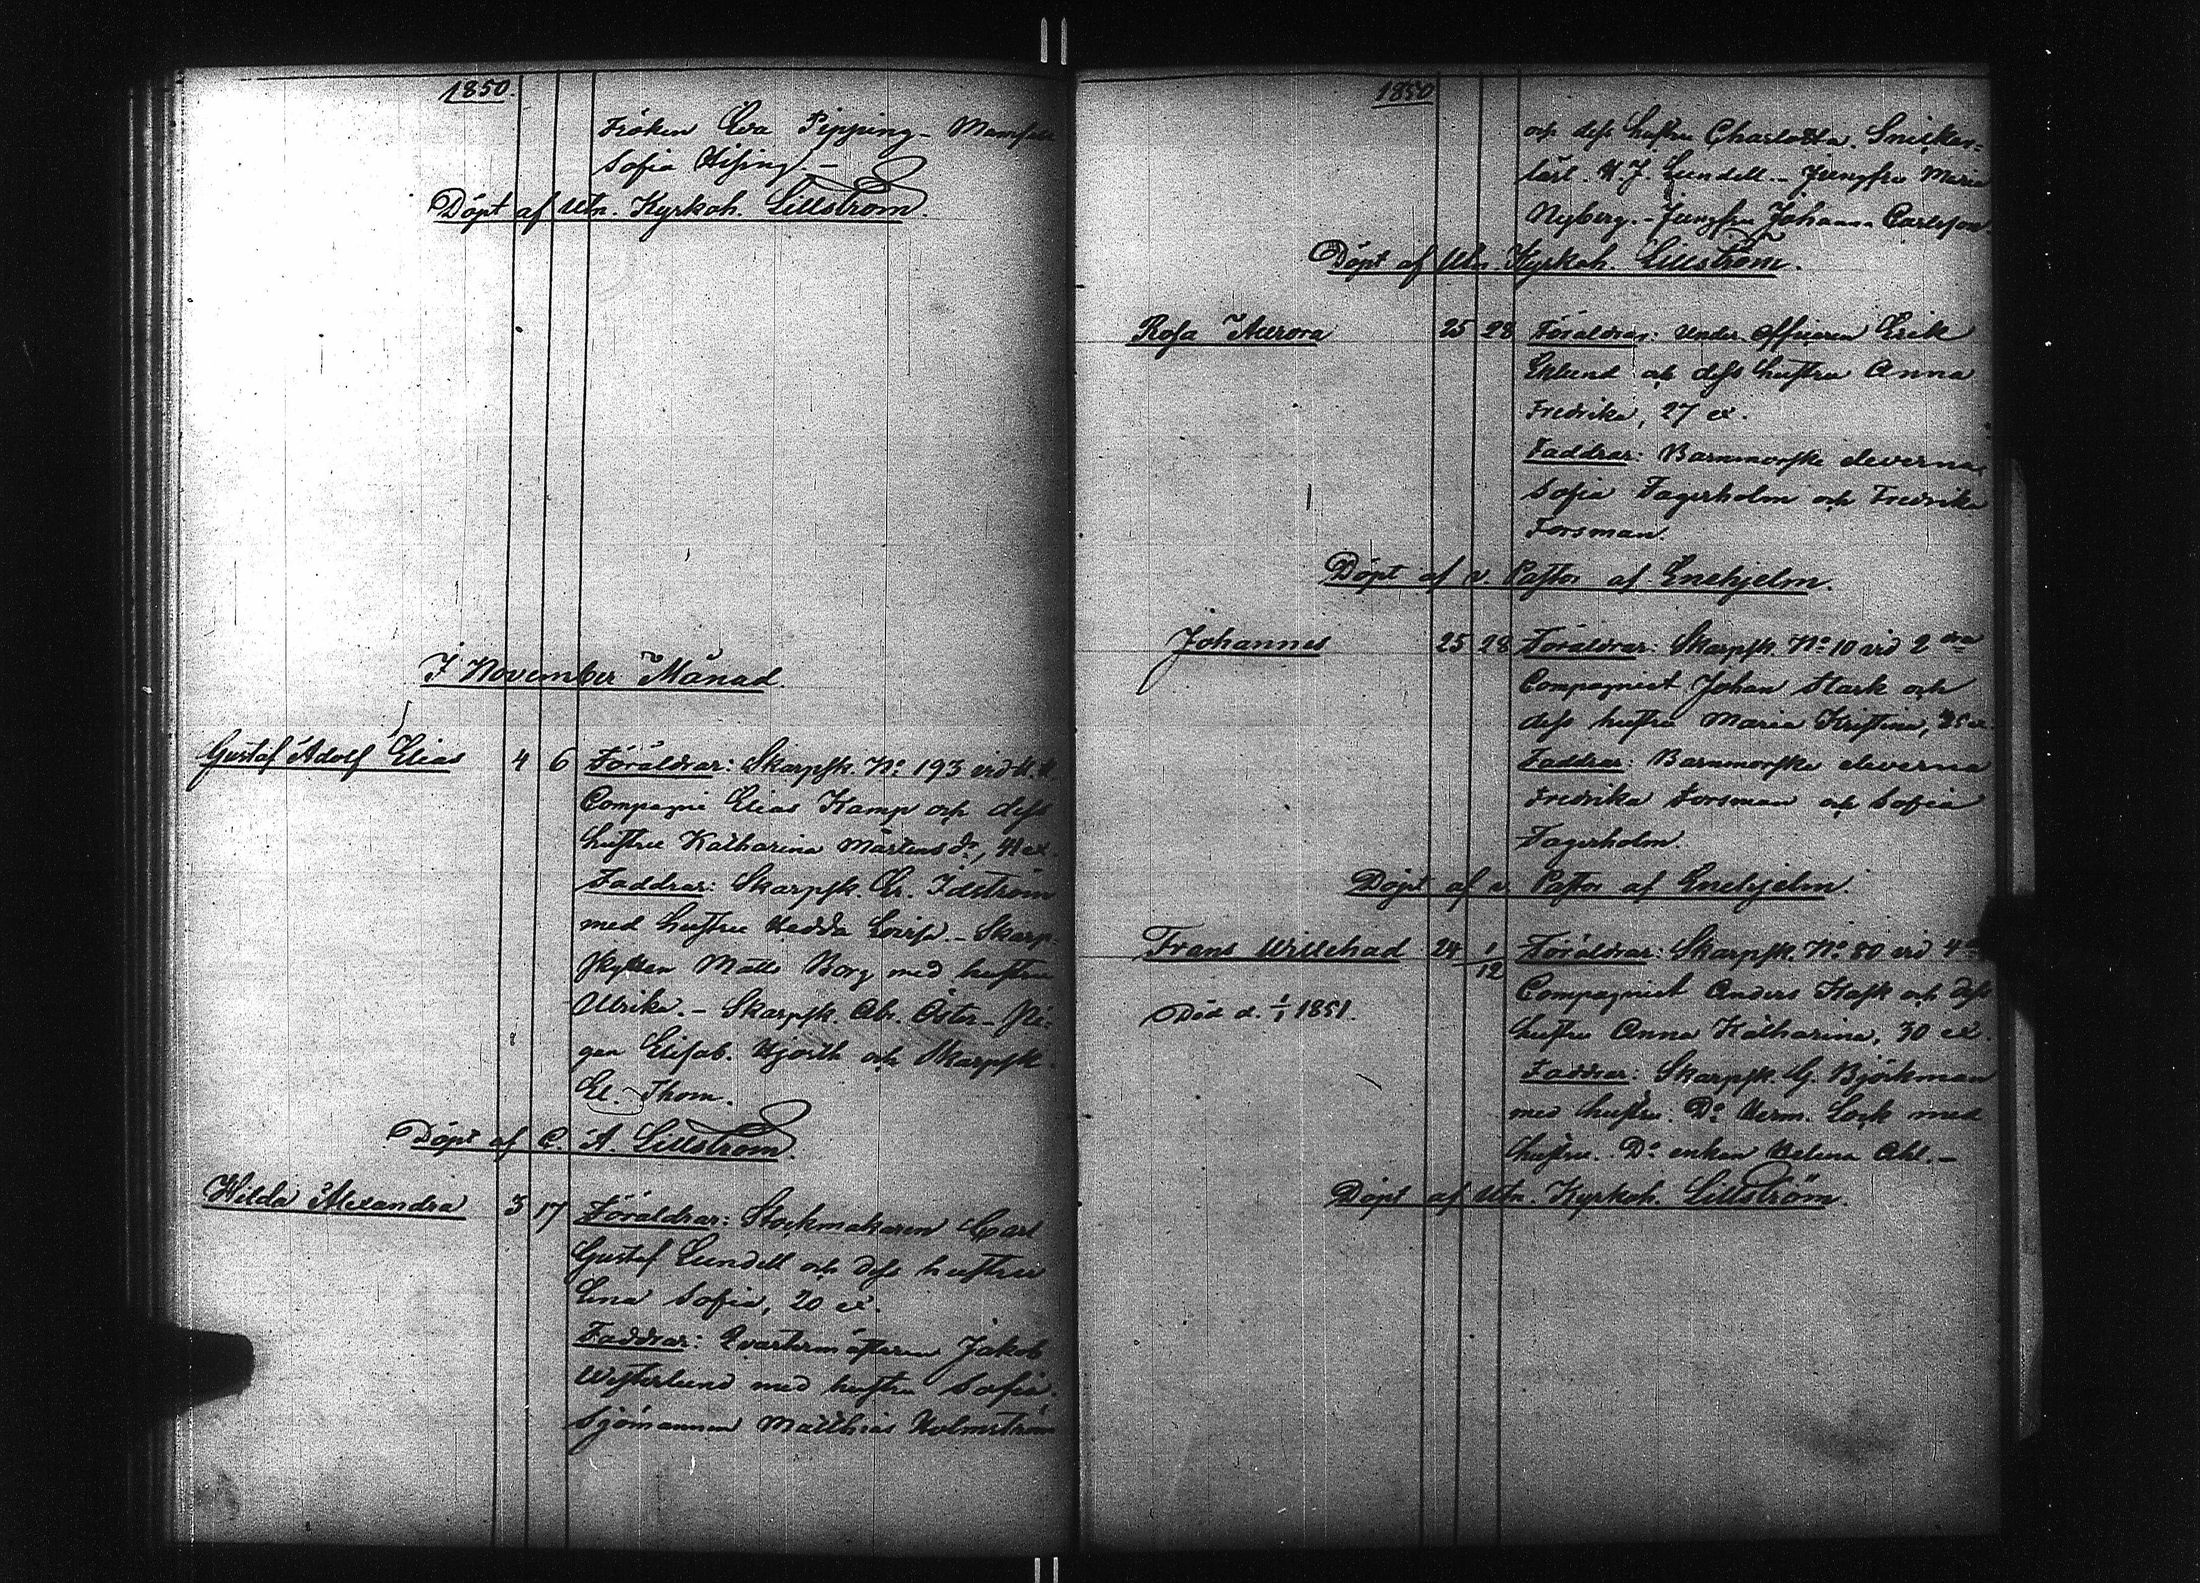 1850.
Fröken Eva Pipping – Mamsell
Sofia Hising –
Döpt af Utn. Kyrkoh. Lillström.
I November Månad.
Gustaf Adolf Elias 4 6 Föräldrar: Skarpsk. No 193 vid
Compagni Elias Kamp och dess
hustru Katharina Mårtensdr,
Faddrar: Skarpsk. Gr. Idström
med hustru Hedda Lovisa. – Skarp-
skytten Matts Borg med hustru
Ulrika. – Skarpsk. Abr. Öster – Pi-
gan Elisab. Hjorth och Skarpsk.
El. Thom.
Döpt af C. A. Lillström.
Hilda Alexandra 3 17 Föräldrar: Stockmakaren Carl
Gustaf Lundell och dess hustru
Lena Sofia, 20 ex.
Faddrar: Qvartermästaren Jakob
Westerlund med hustru Sofia.
Sjömannen Matthias Holmström
1850
och dess hustru Charlotta. Snickar-
lärl. H. J. Lundell. – Jungfru Maria
Nyberg. – Jungfru Johanna Carlsson.
Döpt af Utn. Kyrkoh. Lillström.
Rosa Aurora 25 28 Föräldrar: Under-officeren Erik
Eklund och dess hustru Anna
Fredrika, 27 ex.
Faddrar: Barnmorske eleverna
Sofia Fagerholm och Fredrika
Forsman.
Döpt af v. Pastor af Enehjelm.
Johannes 25 28 Föräldrar: Skarpsk. No 10 vid 2dra
Compagniet Johan Stark och
dess hustru Maria Kristina,
Faddrar: Barnmorske eleverna
Fredrika Forsman och Sofia
Fagerholm.
Döpt af v. Pastor af Enehjelm.
Frans Willehad 24 1/12 Föräldrar: Skarpsk. No 80 vid 4de
Compagniet Anders Hask och dess
Död d. 1/1 1851.
hustru Anna Katharina, 30 ex.
Faddrar: Skarpsk. G. Björkman
med hustru. Do Herm. Lock med
hustru. Do enkan Helena Ahl. –
Döpt af Utn. Kyrkoh. Lillström.